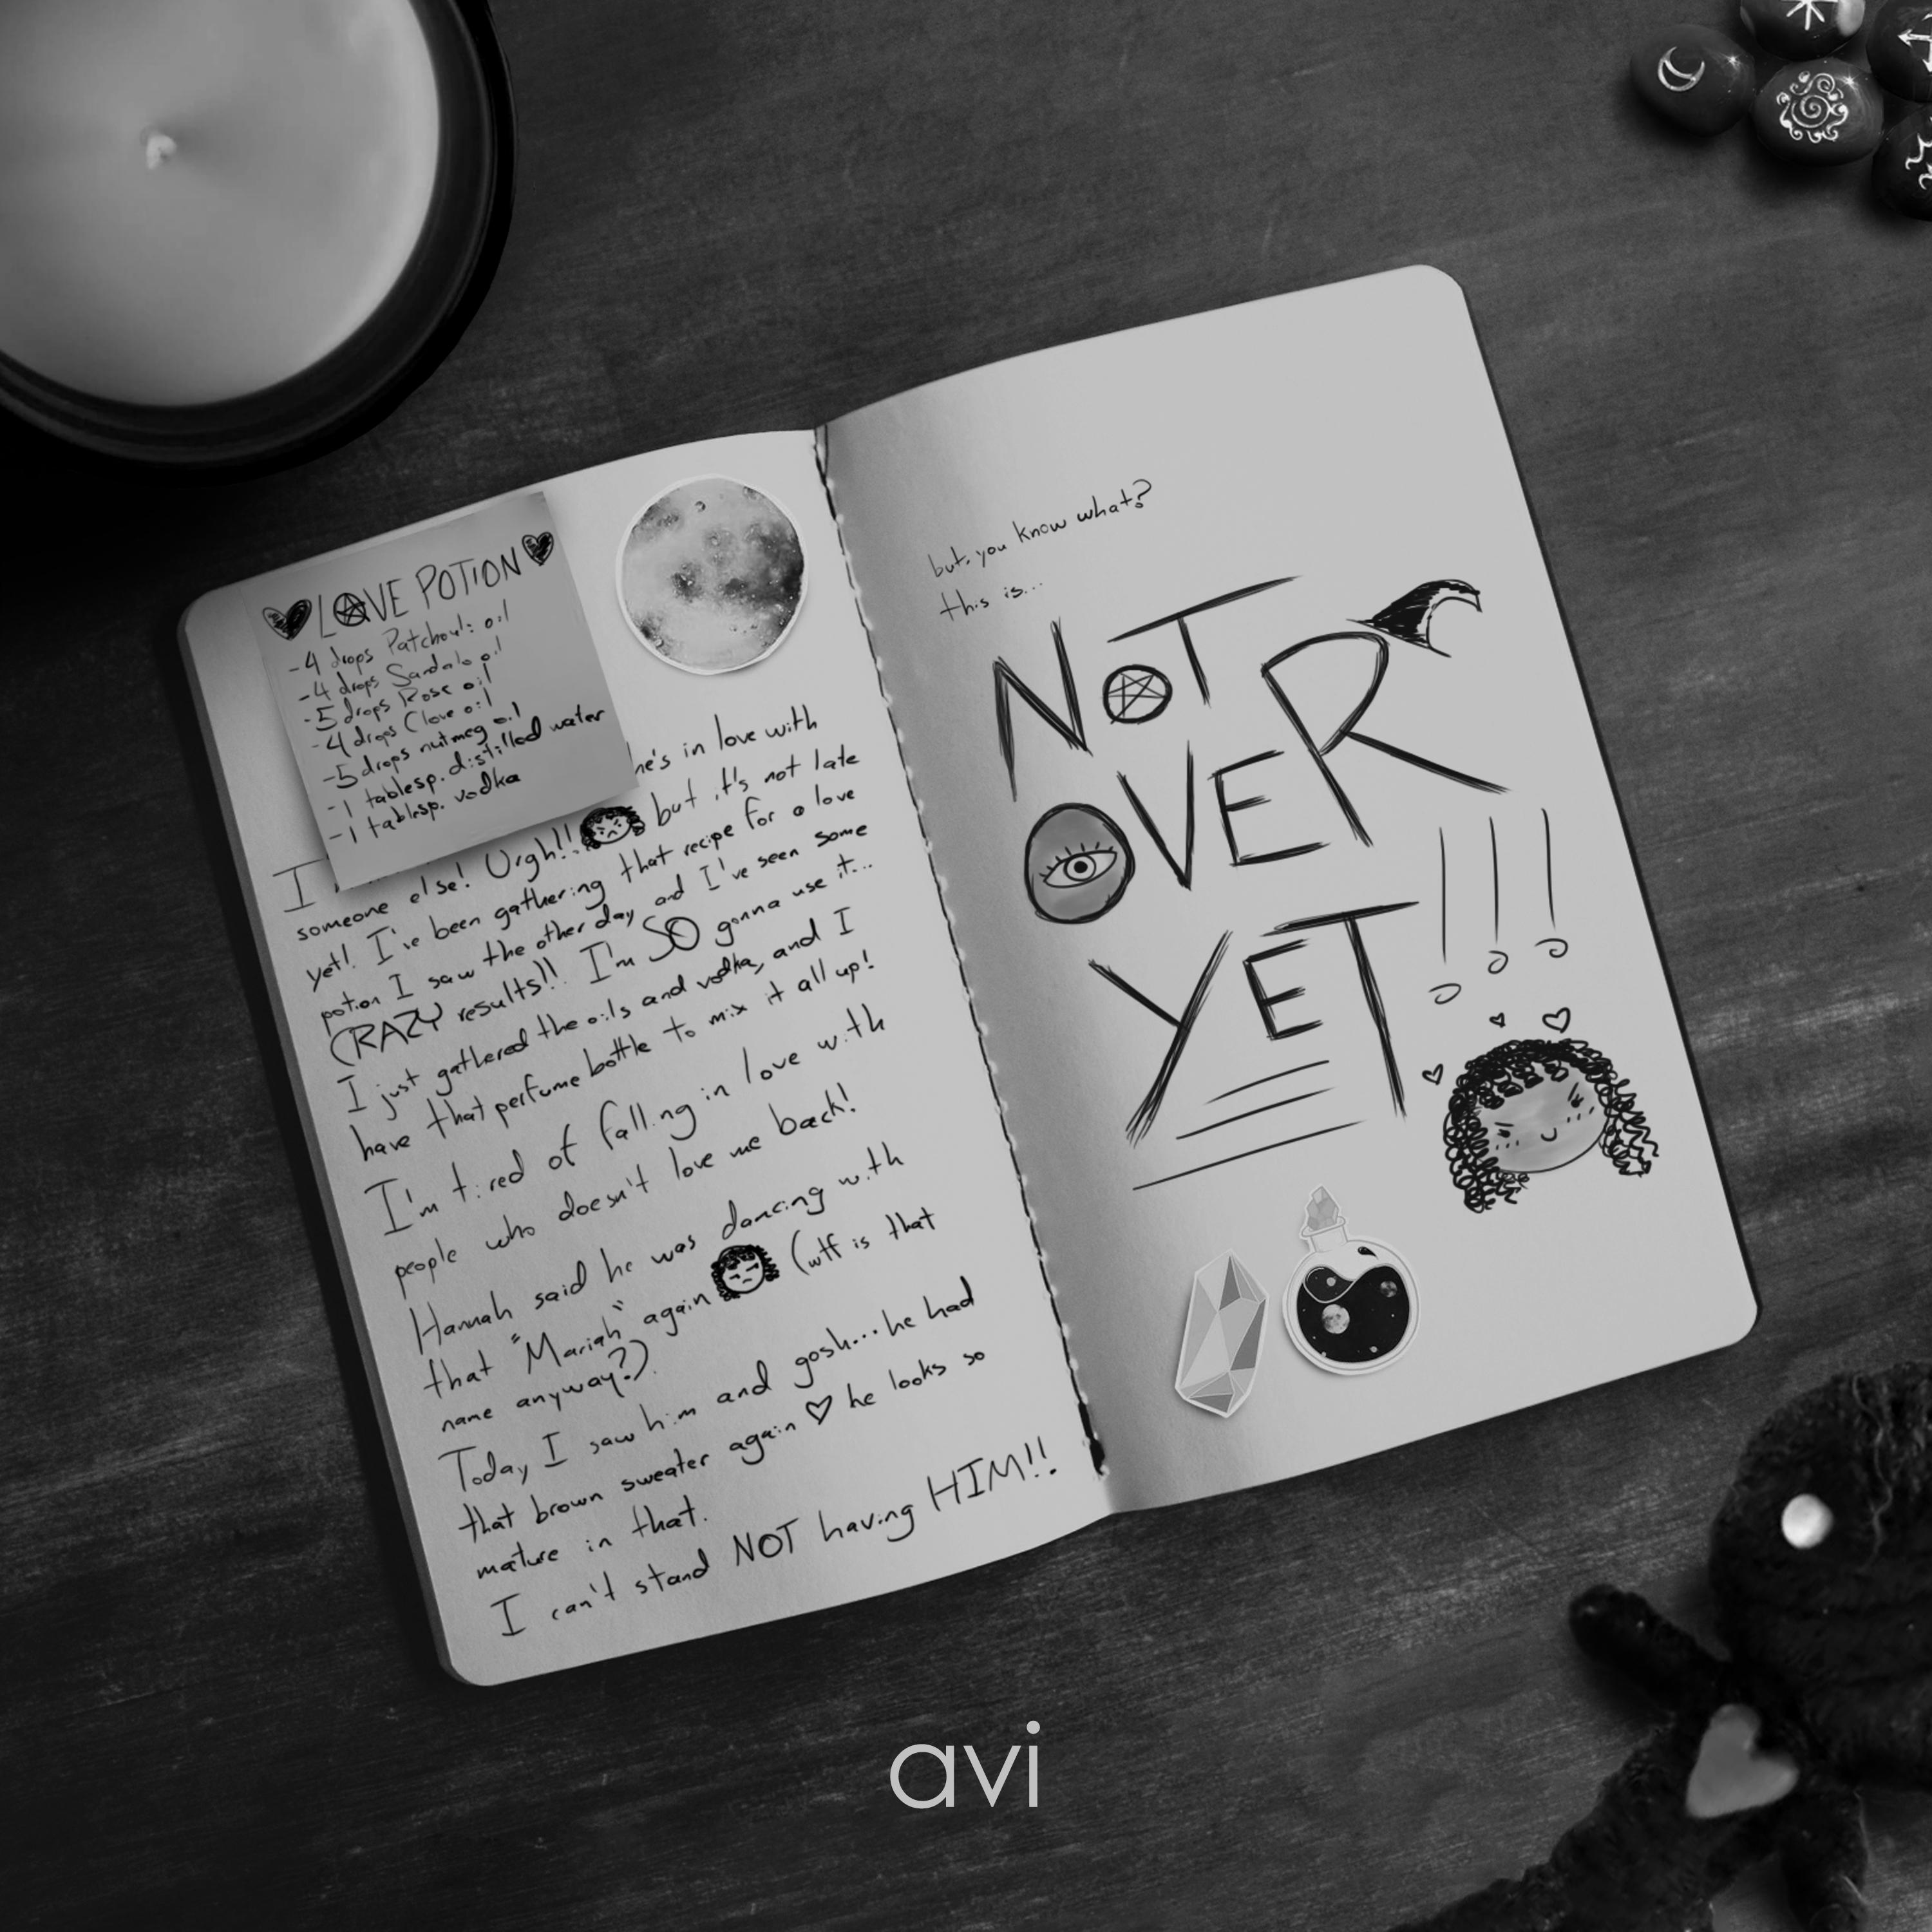 LOVE POTION
-4 drops Patchouli oil
-4 drops Sandalo oil
-5 drops Rose oil
-4 drops Clove oil
-5 drops nutmeg oil
-1 tablesp. distilled water
-1 tablesp. vodka
I he's in love with
someone else! Urgh!! but it's not late
yet! I've been gathering that recipe for a love
potion I saw the other day and I've seen some
CRAZY results!! I'm SO gonna use it...
I just gathered the oils and vodka, and I
have that perfume bottle to mix it all up!
I'm tired of falling in love with
people who doesn't love me back!
Hannah said he was dancing with
that "Mariah" again (wtf is that
name anyway?).
Today I saw him and gosh... he had
that brown sweater again ♡ he looks so
mature in that.
I can't stand NOT having HIM!!
but, you know what?
this is...
NOT
OVER
YET!!!
avi